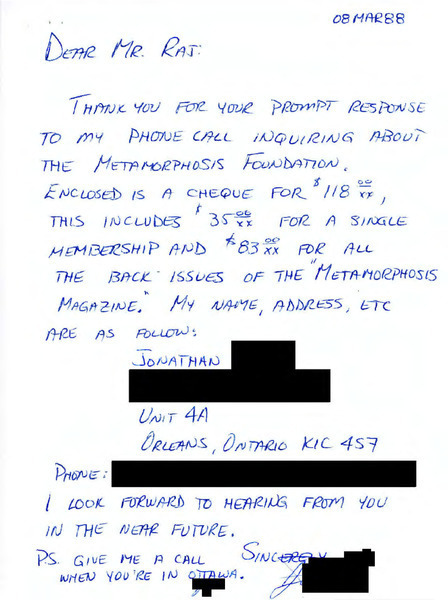 08 MAR 88
DEAR MR. RAJ:
THANK YOU FOR YOUR PROMPT RESPONSE
TO MY PHONE CALL INQUIRING ABOUT
THE METAMORPHOSIS FOUNDATION.
ENCLOSED IS A CHEQUE FOR $118 00/XX,
THIS INCLUDES $35 00/XX FOR A SINGLE
MEMBERSHIP AND $83 00/XX FOR ALL
THE BACK ISSUES OF THE "METAMORPHOSIS
MAGAZINE." MY NAME, ADDRESS, ETC
ARE AS FOLLOW:
JONATHAN
UNIT 4A
ORLEANS, ONTARIO K1C 4S7
PHONE:
I LOOK FORWARD TO HEARING FROM YOU
IN THE NEAR FUTURE.
SINCERELY
P.S. GIVE ME A CALL
WHEN YOU'RE IN OTTAWA.